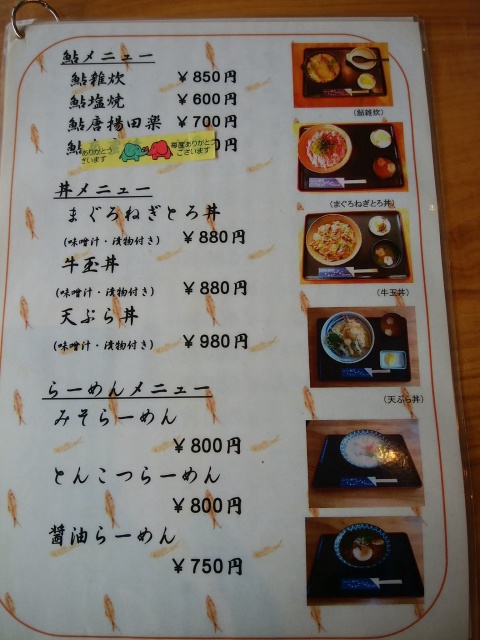 鮎メニュー
鮎雑炊 ￥850円
鮎塩焼 ￥600円
鮎唐揚田楽 ￥700円
鮎 0円
ありがとうございます
毎度ありがとうございます
丼メニュー
まぐろねぎとろ丼
(味噌汁・漬物付き) ￥880円
牛玉丼
(味噌汁・漬物付き) ￥880円
天ぷら丼
(味噌汁・漬物付き) ￥980円
らーめんメニュー
みそらーめん
￥800円
とんこつらーめん
￥800円
醤油らーめん
￥750円
(鮎雑炊)
(まぐろねぎとろ丼)
(牛玉丼)
(天ぷら丼)